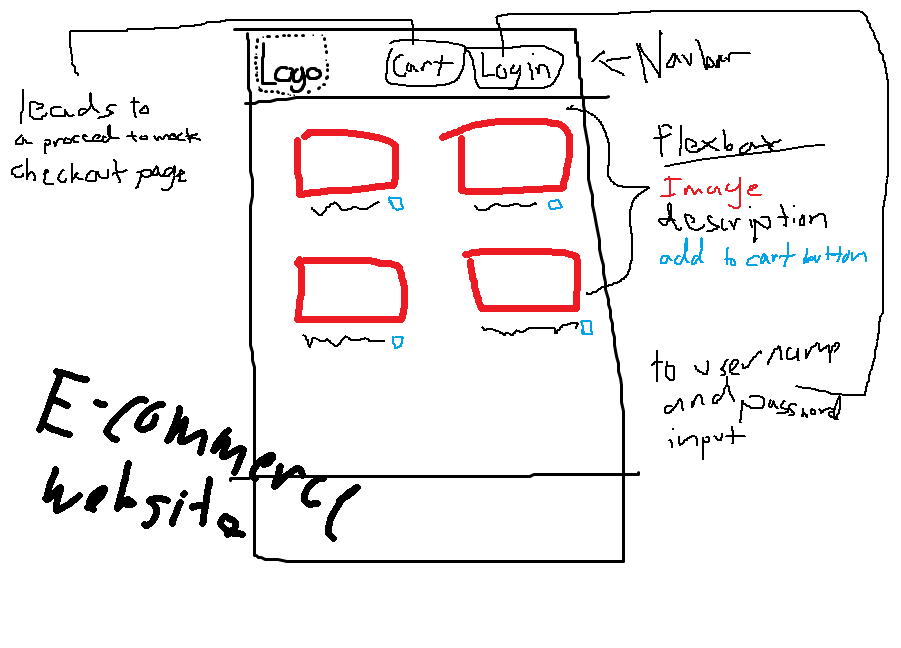 Logo
Cart
Login
Navbar
leads to
a proceed to mock
checkout page
flexbox
Image
description
add to cart button
to username
and password
input
E-commerce
website